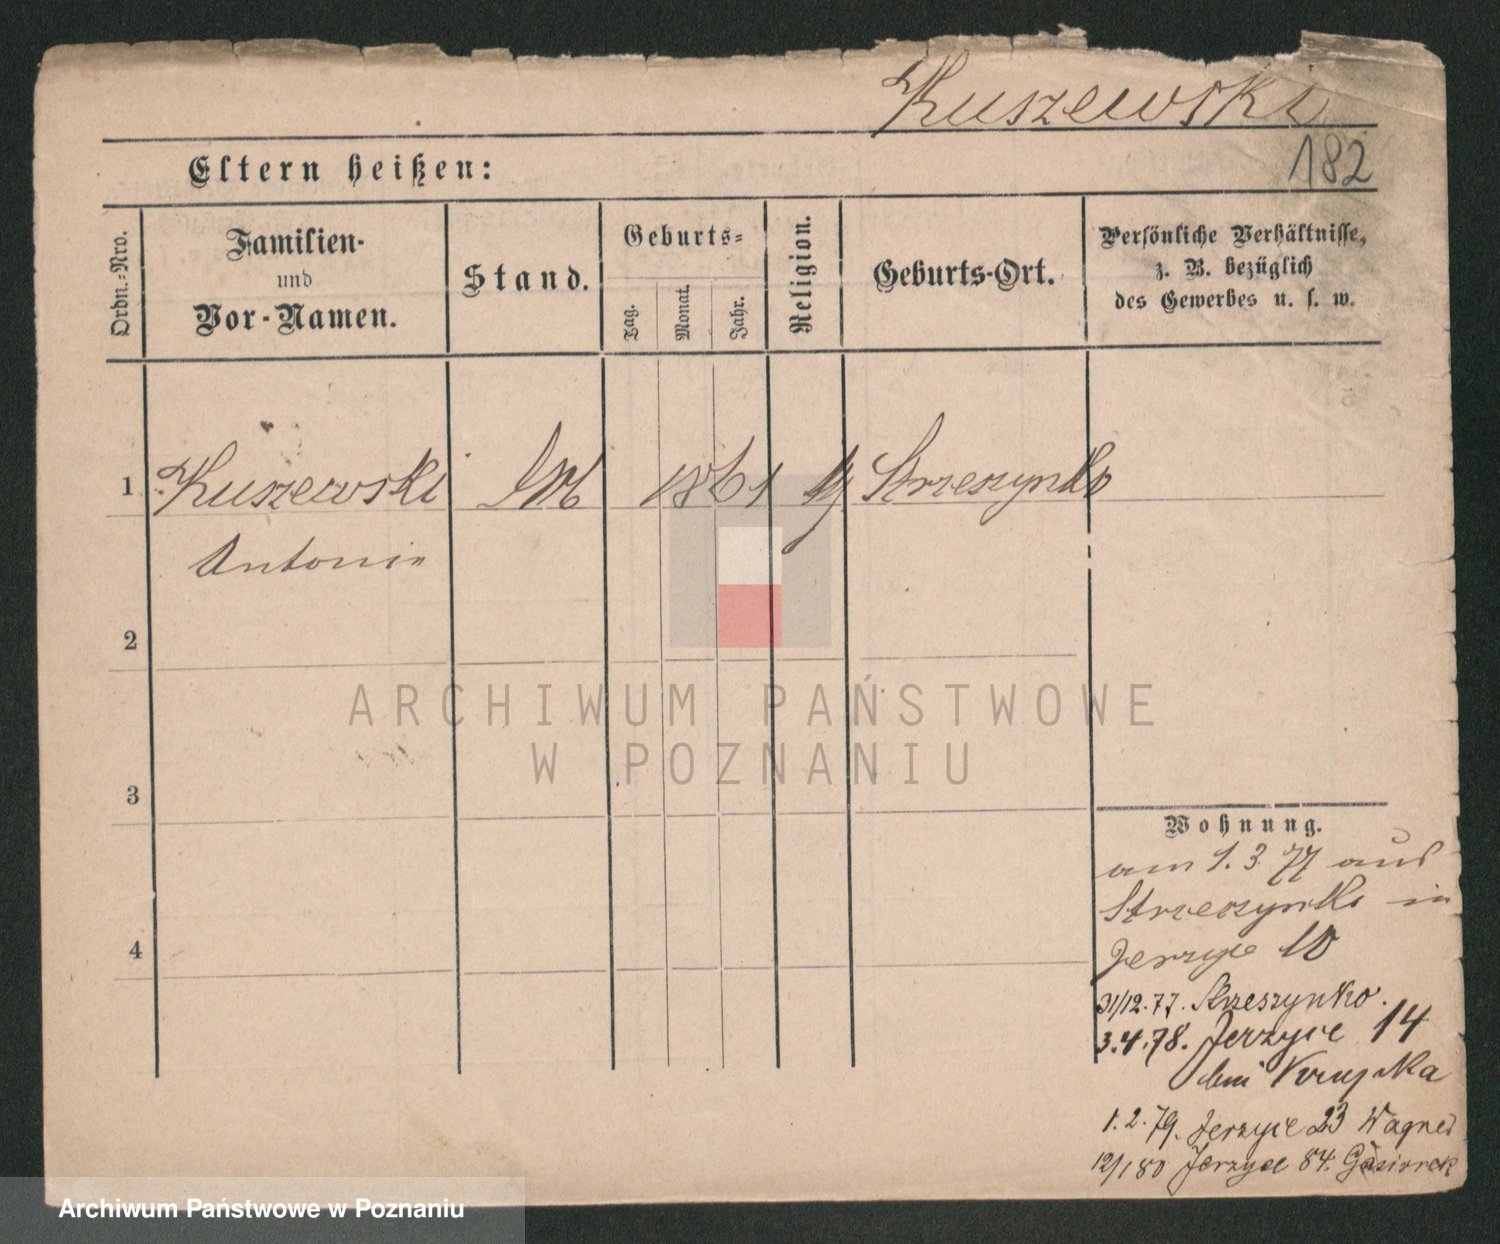 Kuszewski
182
Eltern heißen:
Ordn.-Nro.
Familien-
und
Vor-Namen.
Stand.
Geburts-
Tag.
Monat.
Jahr.
Religion.
Geburts-Ort.
Persönliche Verhältnisse,
z. B. bezüglich
des Gewerbes u. s. w.
1 Kuszewski 1861 Strzeszynko
Antonie
2
3
4
Wohnung.
am 1. 3. 77 aus
Strzeszynko in
Jerzyce 10
31/12.77. Strzeszynko.
3.4.78. Jerzyce 14
bei Krupka
1.2.79. Jerzyce 23 Wagner
12/1 80 Jerzyce 84. Gasiorek
ARCHIWUM PAŃSTWOWE
W POZNANIU
Archiwum Państwowe w Poznaniu